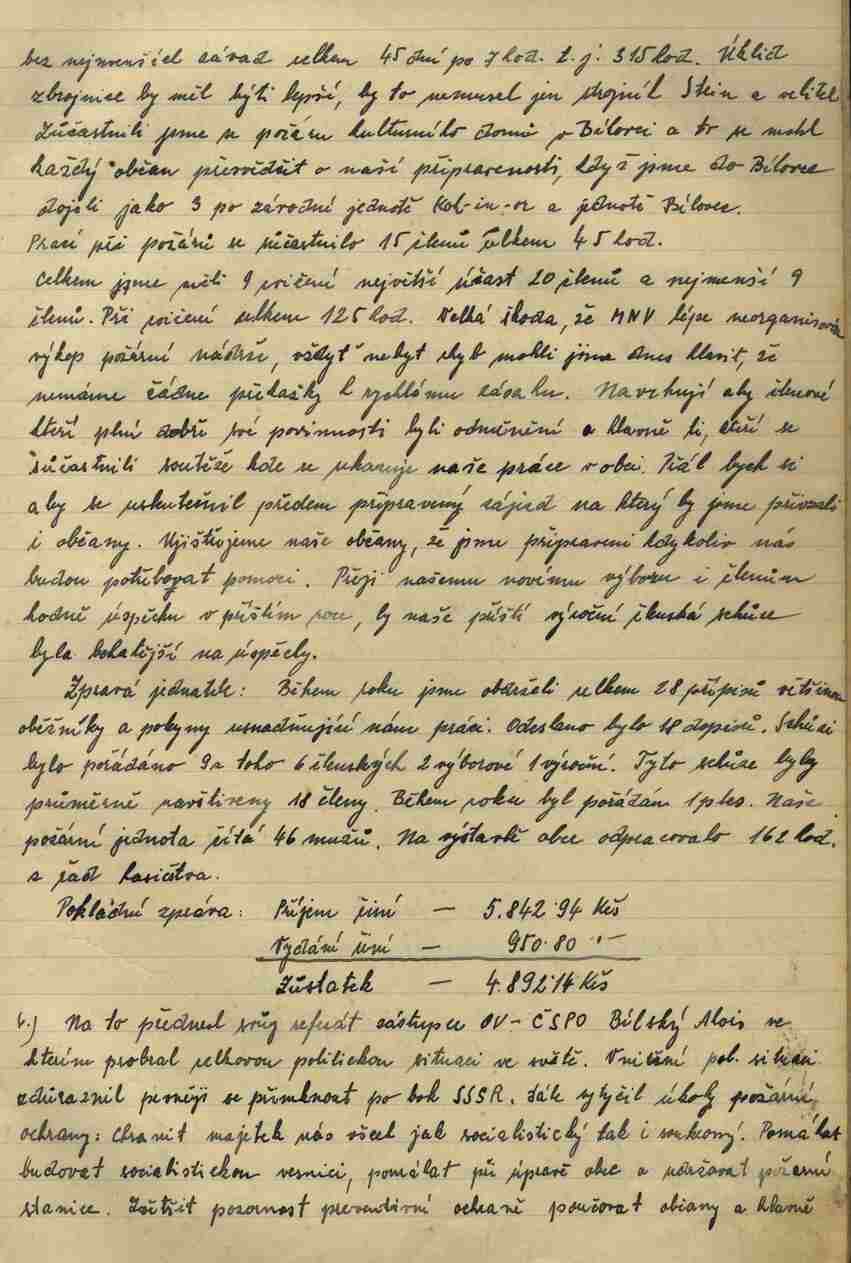 bez nejmenších závad celkem 45 dní po 7 hod. t.j. 315 hod. Úklid
zbrojnice by měl býti lepší, by to nemusel jen strojník Stein a velitel
Zúčastnili jsme se požáru kulturního domu v Bílovci a to se mohl
každý občan přesvědčit o naší připravenosti, když jsme do Bílovce
dojeli jako 3 po závodní jednotě a jednotě Bílovec.
Prací při požáru se zúčastnilo 15 členů celkem 45 hod.
Celkem jsme měli 9 cvičení největší účast 20 členů a nejmenší 9
členů. Při cvičení celkem 125 hod. Velká škoda, že MNV lépe neorganisoval
výkop požární nádrže, vždyť nebýt chyb mohli jsme dnes hlásit, že
nemáme žádné překážky k rychlému zásahu. Navrhuji aby členové
kteří plní dobře své povinnosti byli odměnění a hlavně ti, kteří se
súčastnili soutěže kde se ukazuje naše práce v obci. Přál bych si
aby se uskutečnil předem připravený zájezd na který by jsme přizvali
i občany. Ujišťujeme naše občany, že jsme připraveni kdykoliv nás
budou potřebovat pomoci. Přeji našemu novému výboru i členům
hodně úspěchu v příštím roce, by naše příští výroční členská schůze
byla bohatější na úspěchy.
Zpráva jednatele: Během roku jsme obdrželi celkem 28 přípisů většinou
oběžníky a pokyny usnadňující nám práci. Odesláno bylo 18 dopisů. Schůzí
bylo pořádáno 9 z toho 6 členských 2 výborové 1 výroční. Tyto schůze byly
průměrně navštíveny 18 členy. Během roku byl pořádán 1 ples. Naše
požární jednota čítá 46 mužů. Na výstavbě obce odpracovalo 162 hod.
z řad hasičstva.
Pokladní zpráva: Příjem činí — 5.842·94 Kčs
Vydání činí — 950·80 "—
Zůstatek — 4.892·14 Kčs
6.) Na to přednesl svůj referát zástupce OV-ČSPO Bílský Alois ve
kterém probral celkovou politickou situaci ve světě. Vnitřní pol. situaci
zdůraznil pevněji se přimknout po bok SSSR. Dále vytyčil úkoly požární
ochrany: chránit majetek nás všech jak socialistický tak i soukromý. Pomáhat
budovat socialistickou vesnici, pomáhat při úpravě obce a udržovat požární
stanice. Zvětšit pozornost preventivní ochraně poučovat občany a hlavně